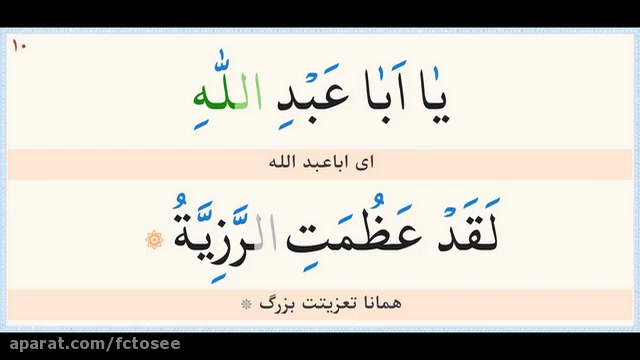 ۱۰
یٰا اَبٰا عَبْدِ اللّٰهِ
ای اباعبد الله
لَقَدْ عَظُمَتِ الرَّزِیَّةُ
همانا تعزیتت بزرگ
aparat.com/fctosee